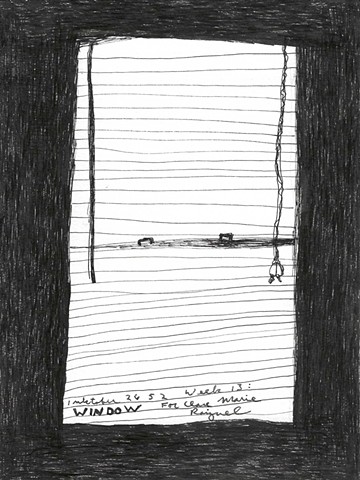 inktober 52 Week 13:
WINDOW For Clare Marie
Raiguel